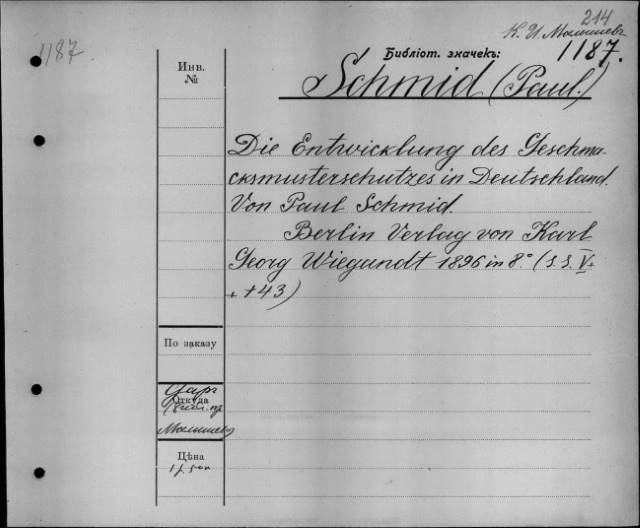 214
К. И. Малышев
1187
Библіот. значекъ:
1187.
Инв.
№
Schmid (Paul.)
Die Entwicklung des Geschma-
cksmusterschutzes in Deutschland.
Von Paul Schmid.
Berlin Verlag von Karl
Georg Wiegandt 1896 in 8.° (S.S. V+
+ 143)
По заказу
Откуда
Малышев
Цѣна